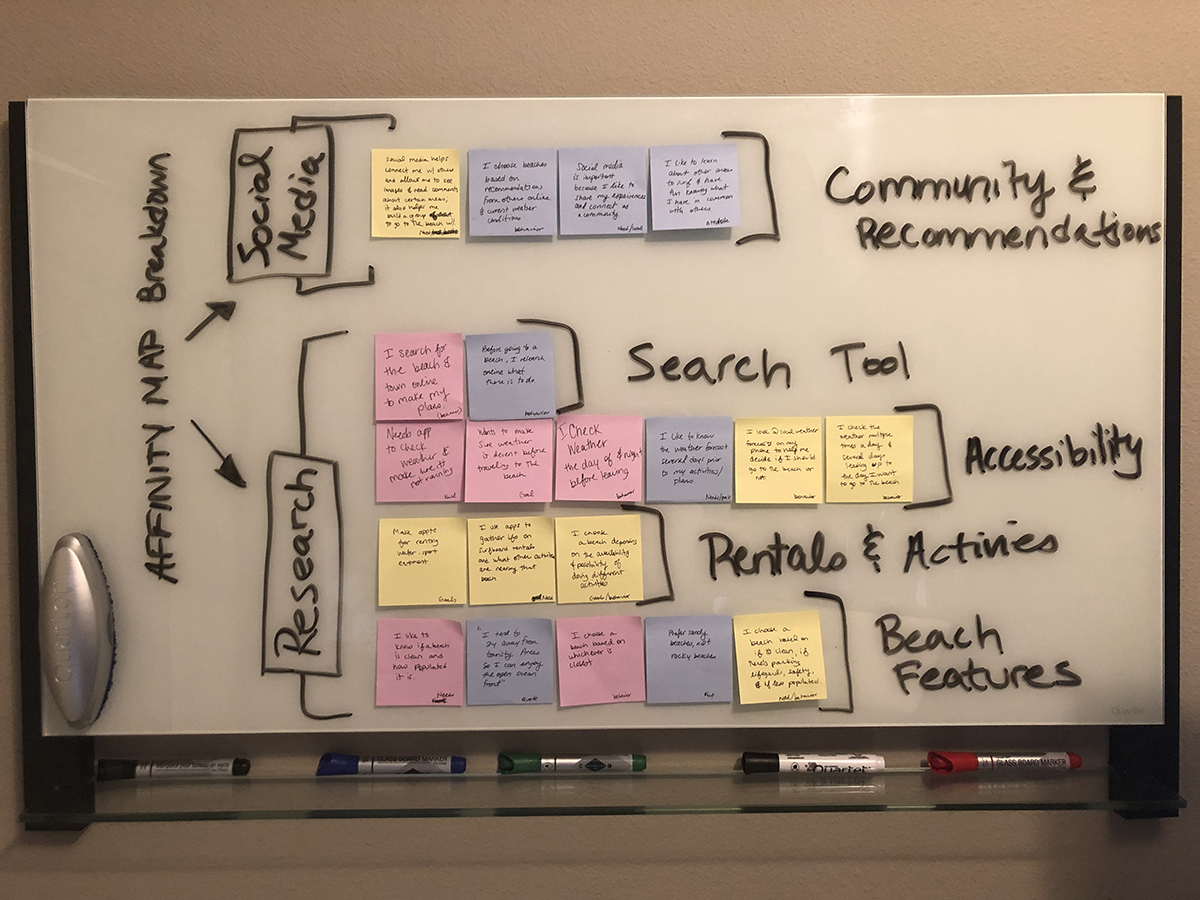 AFFINITY MAP Breakdown
Social
Media
Social media helps
connect me w/ others
and allows me to see
images & read comments
about certain areas,
it also helps me
build a group
to go to the beach w/.
I choose beaches
based on
recommendations
from others online
& current weather
conditions
behavior
Social media
is important
because I like to
share my experiences
and connect as
a community.
Need/
I like to learn
about other areas
to surf & have
fun knowing what
I have in common
with others.
Attitude
Community &
Recommendations
Research
I search for
the beach &
town online
to make my
plans.
(behavior)
Before going to a
beach, I research
online what
there is to do.
behavior
Search Tool
Needs app
to check
weather &
make sure it's
not raining
Need
Wants to make
sure weather
is decent before
traveling to the
beach
Goal
I Check
Weather
the day of & night
before leaving
behavior
I like to know
the weather forecast
several days prior
to my activities/
plans.
Needs/goals
I look @ local weather
forecasts on my
phone to help me
decide if I should
go to the beach or
not.
behavior
I check the
weather multiple
times a day, &
several days
leading up to
the day I want
to go to the beach
behavior
Accessibility
Make appts
for renting
water-sport
Goals
I use apps to
gather info on
surfboard rentals
and what other activities
are nearing that
beach
Need
I choose
a beach depending
on the availability
& possibility of
doing different
activities
Goals/behavior
Rentals & Activies
I like to
know if a beach
is clean and
how populated
it is.
Needs
"I tend to
stay away from
touristy areas
so I can enjoy
the open ocean
front"
Quote
I choose a
beach based on
whichever is
closest
behavior
Prefer sandy
beaches, not
rocky beaches
I choose a
beach based on
if its clean, if
needs parking,
lifeguards, safety
& if less populated.
Need/behavior
Beach
Features
Quartet
GLASS BOARD MARKER
Quartet
GLASS BOARD MARKER